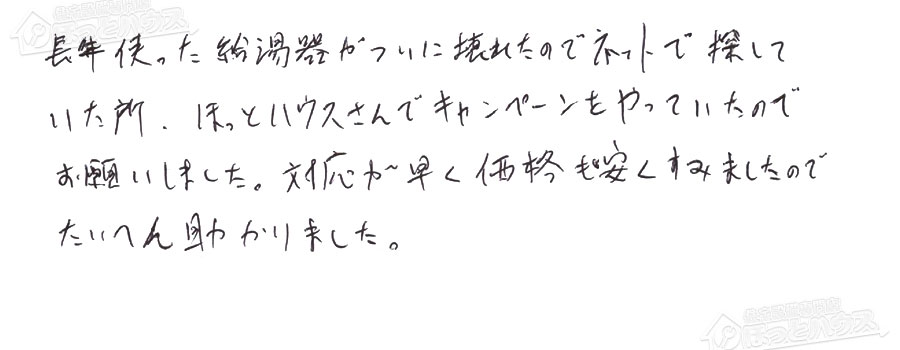 長年使った給湯器がついに壊れたのでネットで探して
いた所、ほっとハウスさんでキャンペーンをやっていたので
お願いしました。対応が早く価格も安くすみましたので
たいへん助かりました。
ほっとハウス